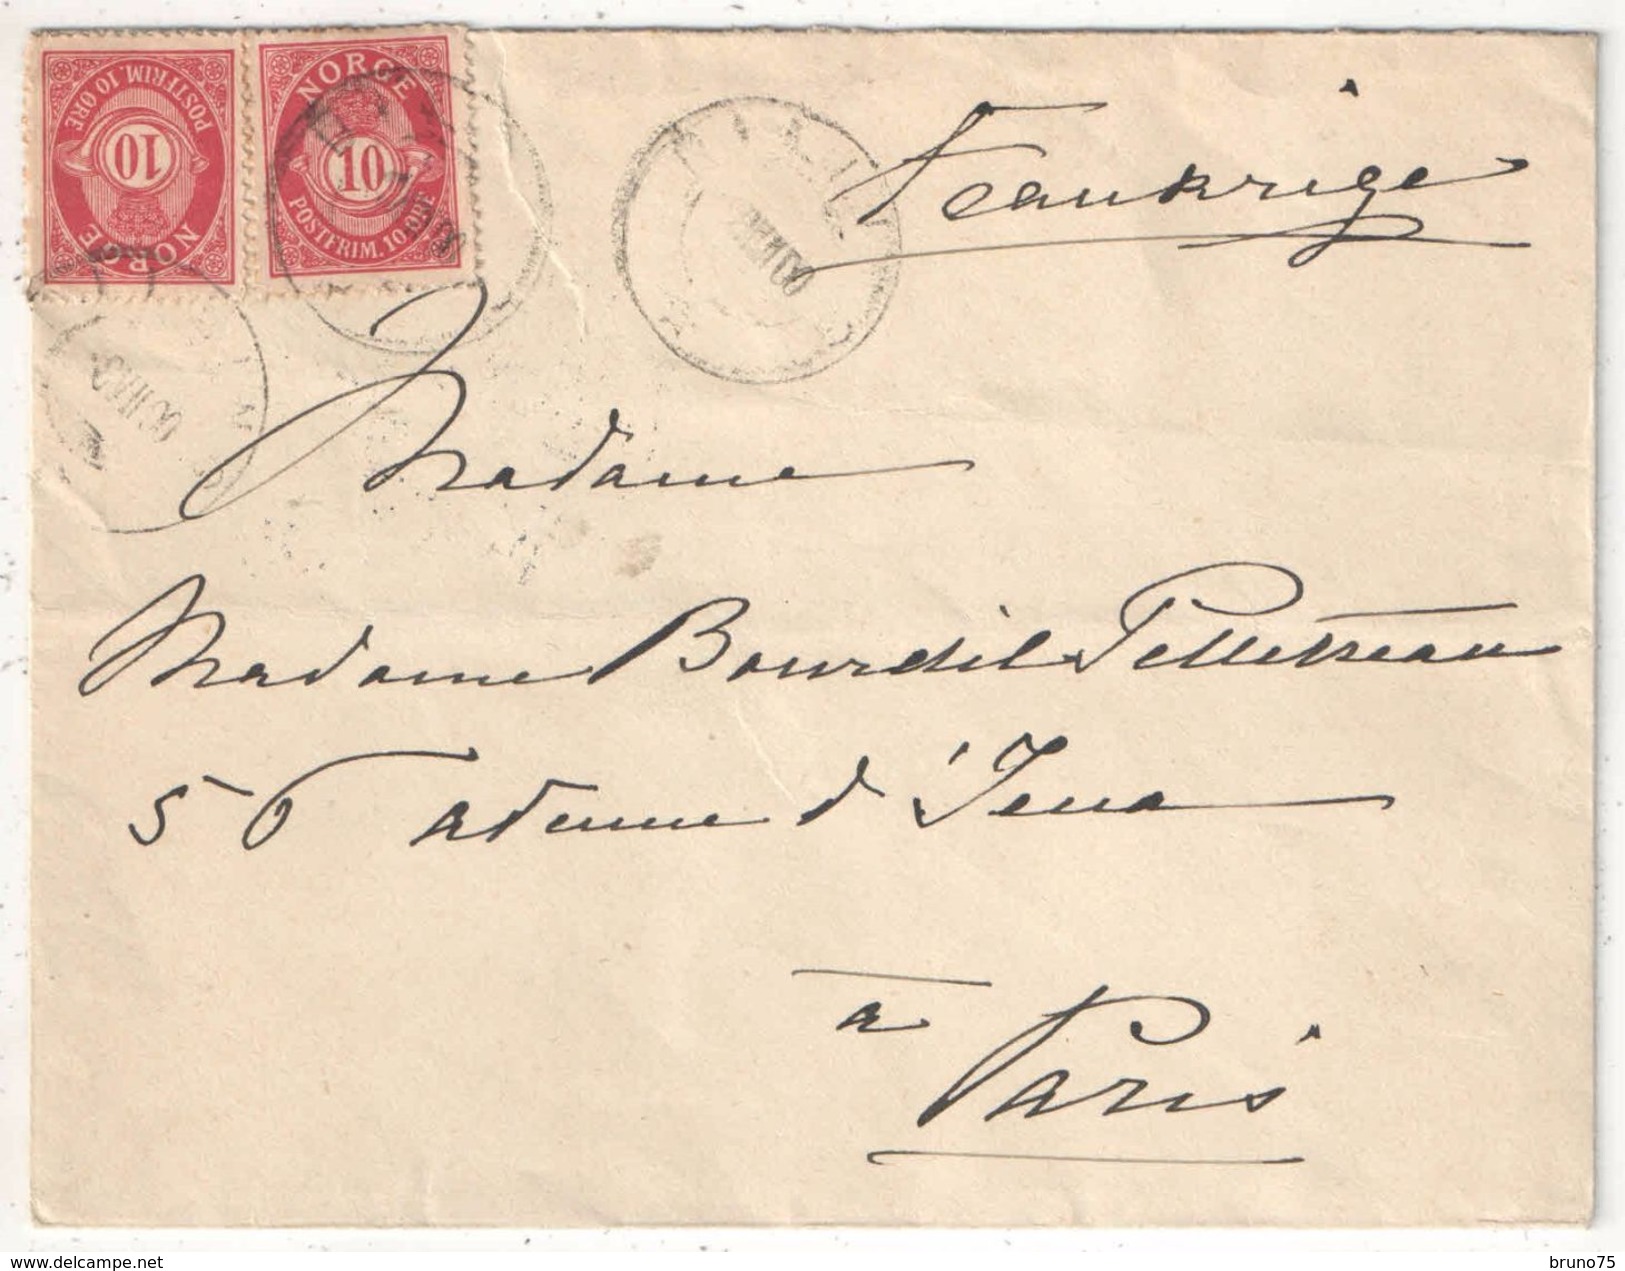 NORGE
10
POSTFRIM. 10 ORE
NORGE
10
POSTFRIM. 10 ORE
Frankrige
Madame
Madame Bourdeil Pelletreau
56 avenue d'Iena
à
Paris
bruno75